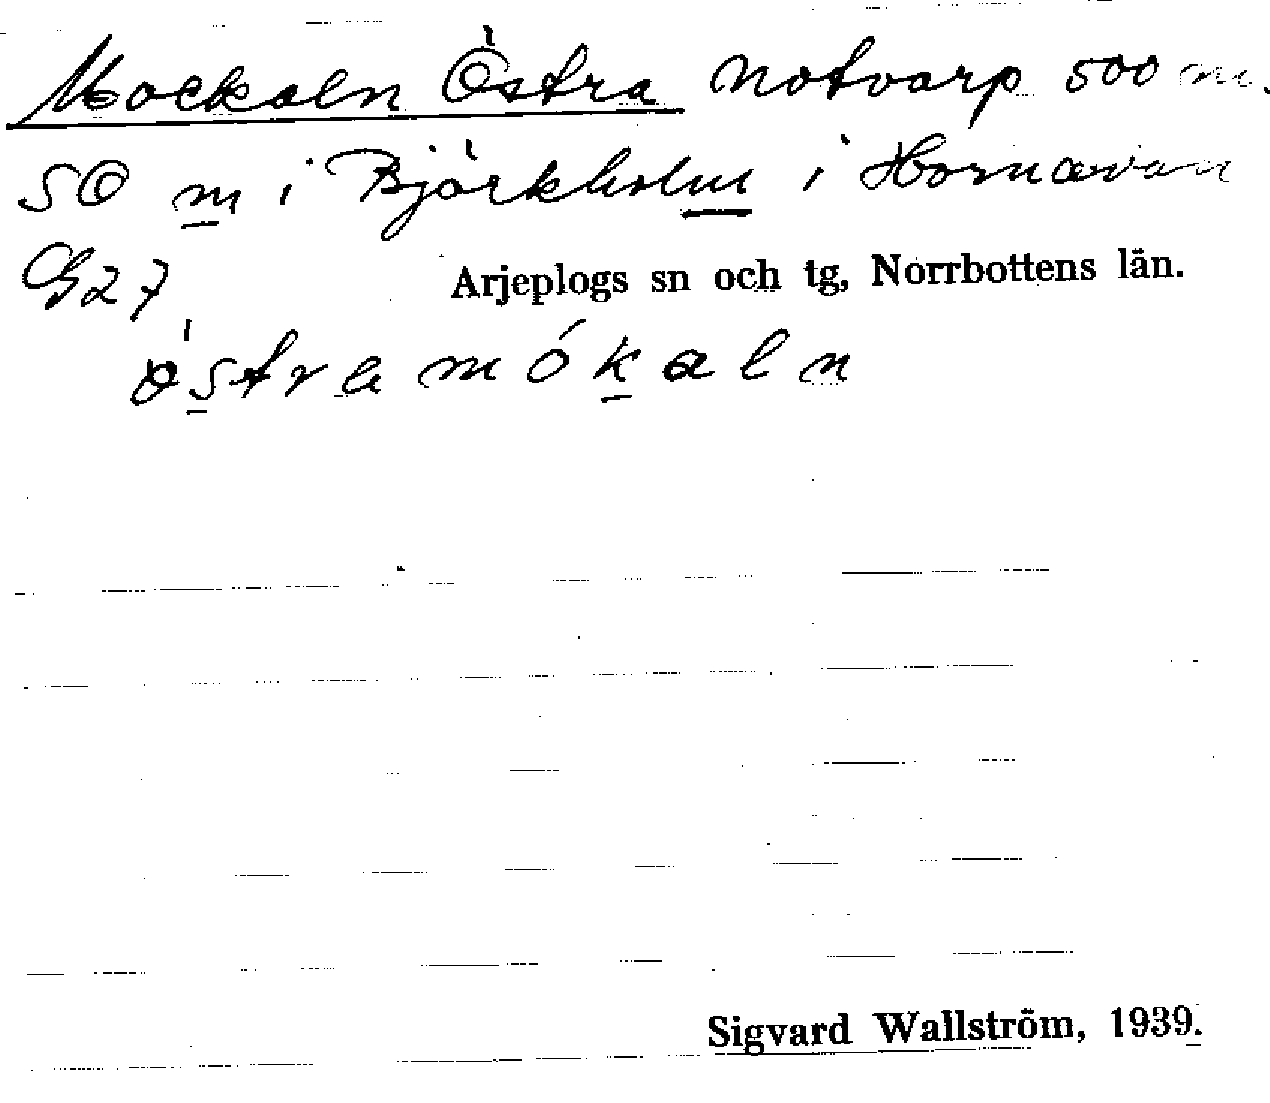 Mockaln Östra notvarp 500 m.
SO m i Björkholm i Hornavan
G27
Arjeplogs sn och tg, Norrbottens län.
östra mókaln
Sigvard Wallström, 1939.